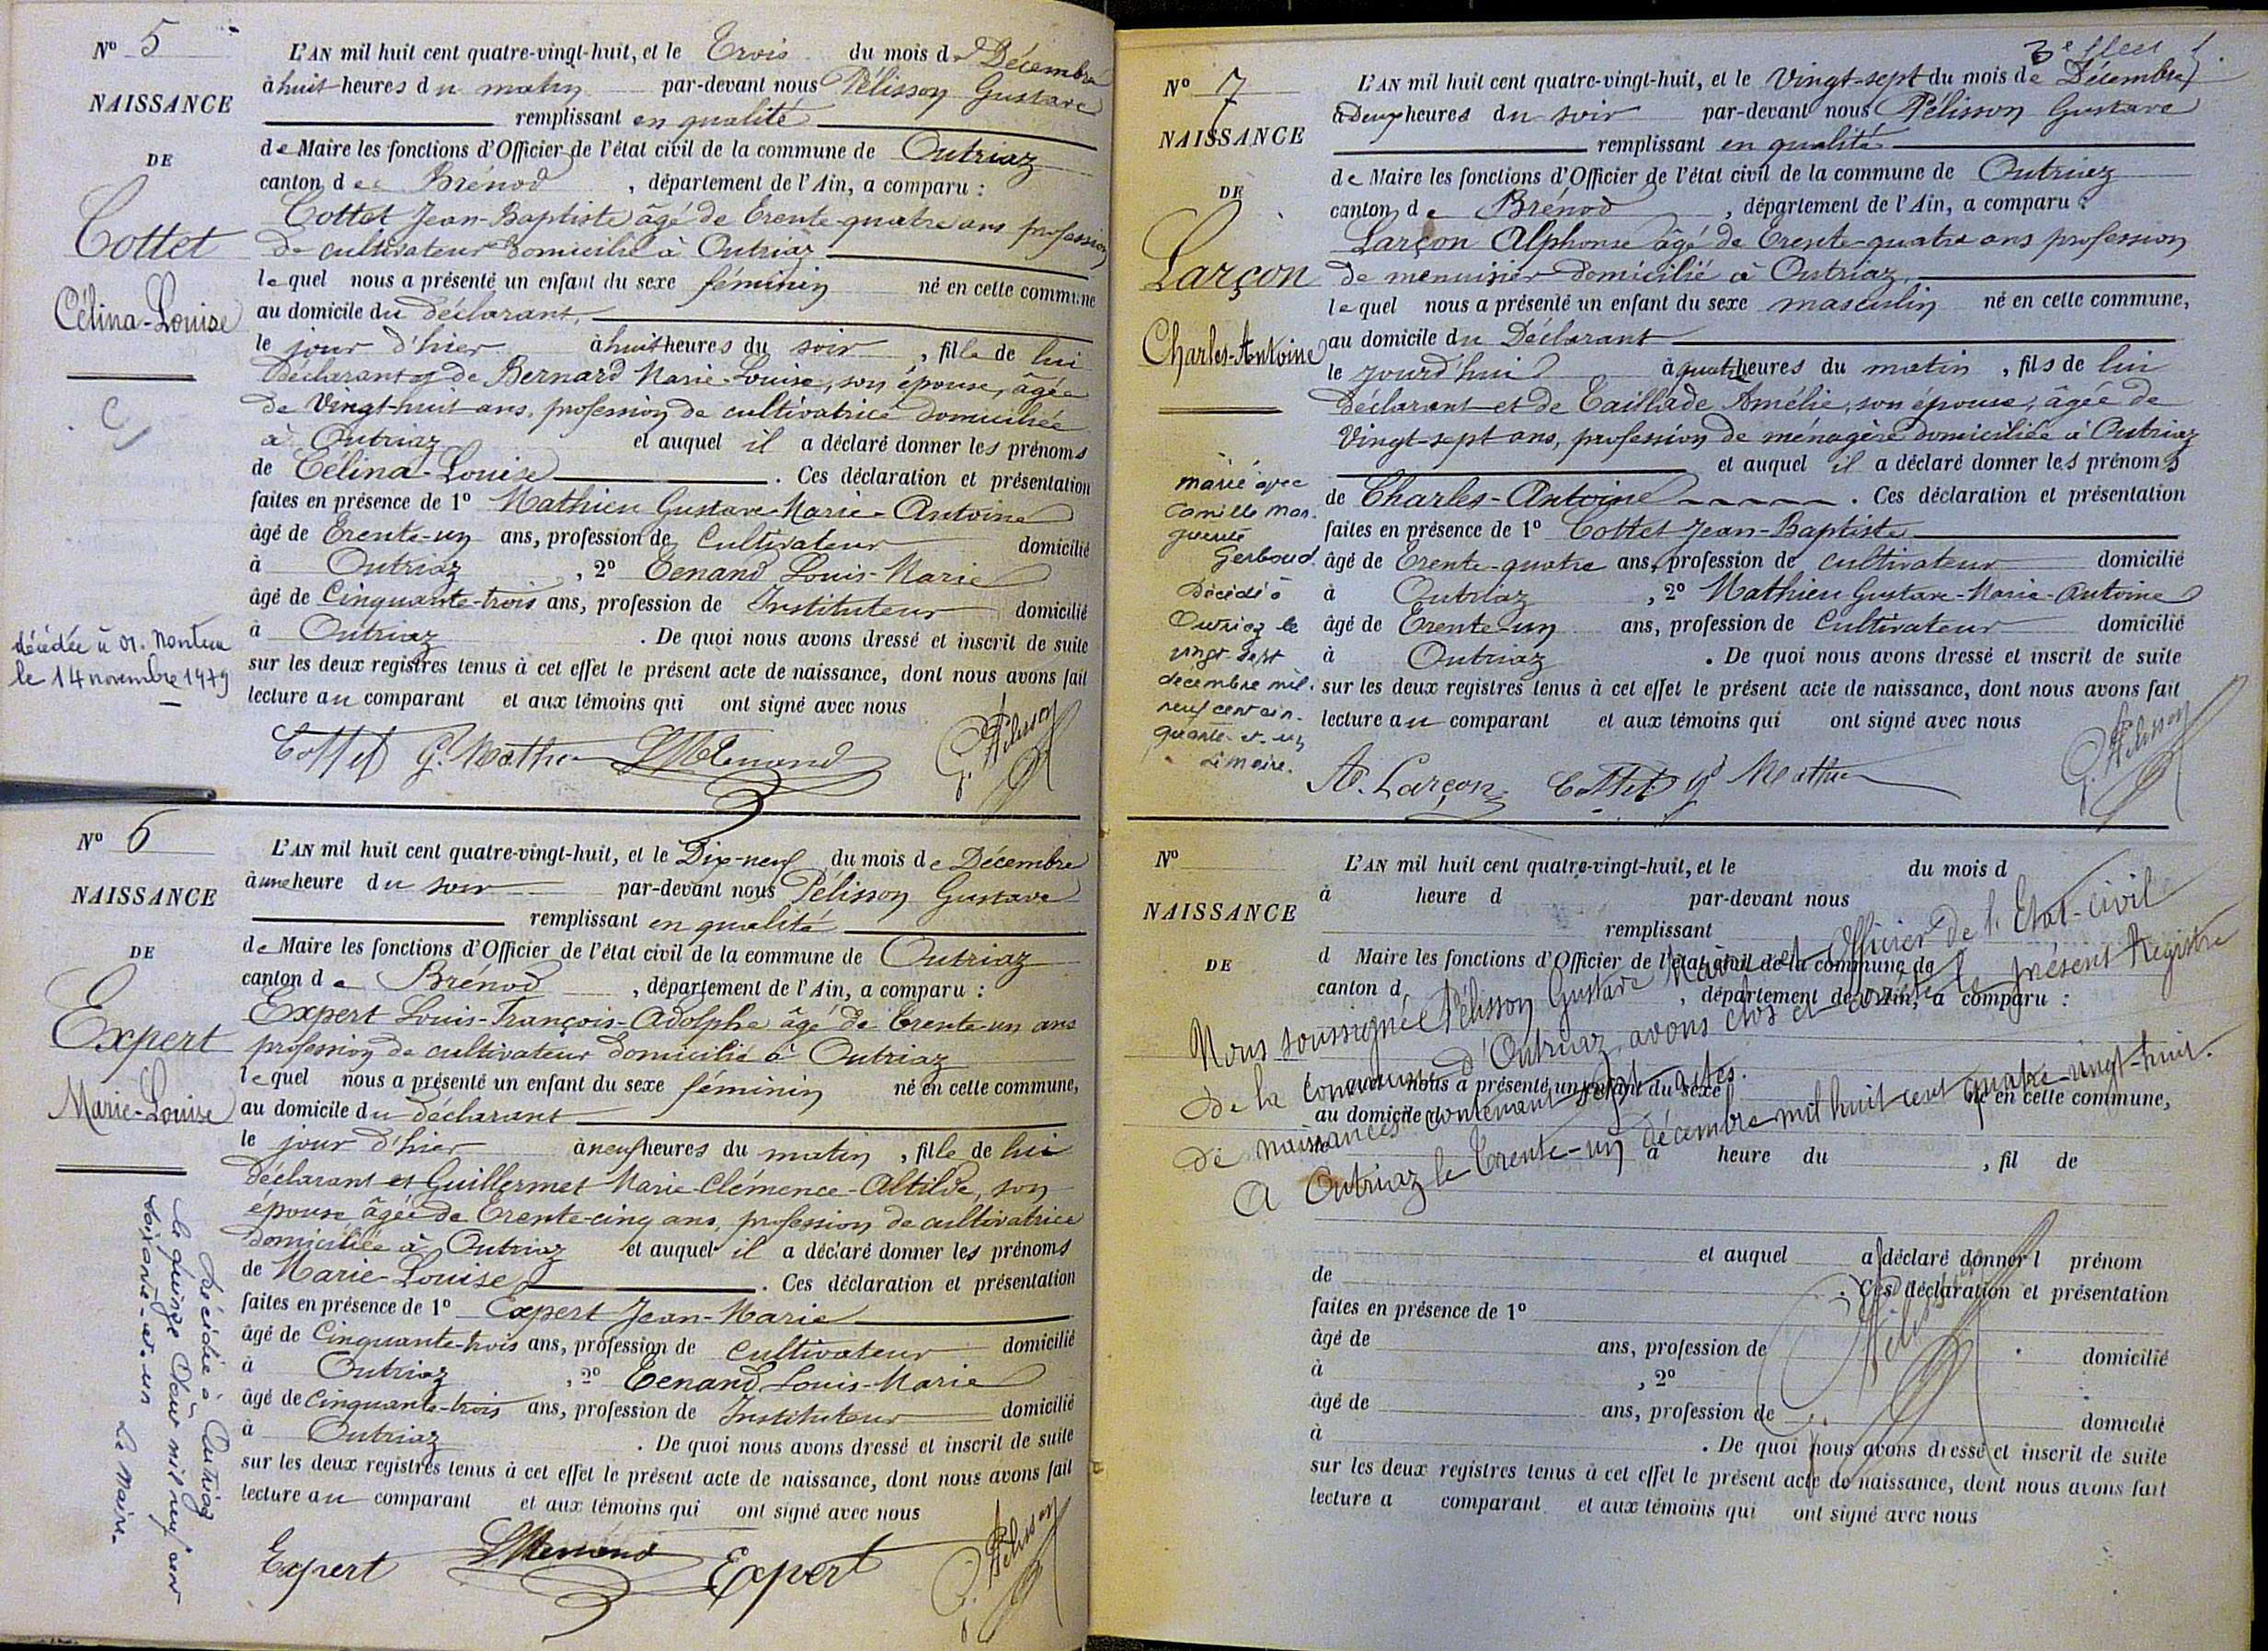 N° 5
NAISSANCE
DE
Cottet
Célina-Louise
décédée à
le 14 novembre 1979
L'AN mil huit cent quatre-vingt-huit, et le Trois du mois de Décembre
à huit heures du matin par-devant nous Pélisson Gustave
remplissant en qualité
de Maire les fonctions d'Officier de l'état civil de la commune de Outriaz
canton de Brénod, département de l'Ain, a comparu :
Cottet Jean-Baptiste âgé de Trente-quatre ans profession
de cultivateur domicilié à Outriaz
lequel nous a présenté un enfant du sexe féminin né en cette commune
au domicile du déclarant,
le jour d'hier à huit heures du soir, fille de lui
déclarant et de Bernard Marie-Louise, son épouse, âgée
de Vingt-huit ans, profession de cultivatrice domiciliée
à Outriaz et auquel il a déclaré donner les prénoms
de Célina-Louise. Ces déclaration et présentation
faites en présence de 1° Mathieu Gustave-Marie-Antoine
âgé de Trente-un ans, profession de Cultivateur domicilié
à Outriaz, 2° Tenand Louis-Marie
âgé de Cinquante-trois ans, profession de Instituteur domicilié
à Outriaz. De quoi nous avons dressé et inscrit de suite
sur les deux registres tenus à cet effet le présent acte de naissance, dont nous avons fait
lecture au comparant et aux témoins qui ont signé avec nous
Cottet G. Mathieu LMTenand G. Pélisson
N° 6
NAISSANCE
DE
Expert
Marie-Louise
Décédée à Outriaz
le quinze mil neuf cent
soixante-et-un Le Maire
L'AN mil huit cent quatre-vingt-huit, et le Dix-neuf du mois de Décembre
à une heure du soir par-devant nous Pélisson Gustave
remplissant en qualité
de Maire les fonctions d'Officier de l'état civil de la commune de Outriaz
canton de Brénod, département de l'Ain, a comparu :
Expert Louis-François-Adolphe âgé de trente-un ans
profession de cultivateur domicilié à Outriaz
lequel nous a présenté un enfant du sexe féminin né en cette commune,
au domicile du déclarant
le jour d'hier à neuf heures du matin, fille de lui
déclarant et Guillermet Marie-Clémence-Altilde, son
épouse, âgée de Trente-cinq ans, profession de cultivatrice
domiciliée à Outriaz et auquel il a déclaré donner les prénoms
de Marie-Louise. Ces déclaration et présentation
faites en présence de 1° Expert Jean-Marie
âgé de Cinquante-trois ans, profession de cultivateur domicilié
à Outriaz, 2° Tenand Louis-Marie
âgé de cinquante-trois ans, profession de Instituteur domicilié
à Outriaz. De quoi nous avons dressé et inscrit de suite
sur les deux registres tenus à cet effet le présent acte de naissance, dont nous avons fait
lecture au comparant et aux témoins qui ont signé avec nous
Expert LMTenand Expert G. Pélisson
3e
N° 7
NAISSANCE
DE
Larçon
Charles-Antoine
marié avec
Camille Mar-
guerite
Gerboud
Décédé à
Outriaz le
vingt-sept
décembre mil-
neuf cent cin-
quante-et-un
Le Maire.
L'AN mil huit cent quatre-vingt-huit, et le Vingt-sept du mois de Décembre
à Deux heures du soir par-devant nous Pélisson Gustave
remplissant en qualité
de Maire les fonctions d'Officier de l'état civil de la commune de Outriaz
canton de Brénod, département de l'Ain, a comparu :
Larçon Alphonse âgé de Trente-quatre ans profession
de menuisier domicilié à Outriaz,
lequel nous a présenté un enfant du sexe masculin né en cette commune,
au domicile du Déclarant
le jourd'hui à quatre heures du matin, fils de lui
déclarant et de Taillade Amélie, son épouse, âgée de
Vingt-sept ans, profession de ménagère domiciliée à Outriaz
et auquel il a déclaré donner les prénoms
de Charles-Antoine. Ces déclaration et présentation
faites en présence de 1° Cottet Jean-Baptiste
âgé de Trente-quatre ans, profession de cultivateur domicilié
à Outriaz, 2° Mathieu Gustave-Marie-Antoine
âgé de Trente-un ans, profession de Cultivateur domicilié
à Outriaz. De quoi nous avons dressé et inscrit de suite
sur les deux registres tenus à cet effet le présent acte de naissance, dont nous avons fait
lecture au comparant et aux témoins qui ont signé avec nous
A. Larçon Cottet G. Mathieu G. Pélisson
N°
NAISSANCE
DE
L'AN mil huit cent quatre-vingt-huit, et le du mois d
à heure d par-devant nous
remplissant
d Maire les fonctions d'Officier de l'état civil de la commune de
canton d, département de l'Ain, a comparu :
Nous soussigné Pélisson Gustave Maire et Officier de l'Etat-civil
de la commune d'Outriaz, avons clos et arrêté le présent Registre
de naissances contenant sept actes.
A Outriaz le Trente-un décembre mil huit cent quatre-vingt-huit.
quel nous a présenté un enfant du sexe né en cette commune,
au domicile d
le à heure du, fil de
et auquel a déclaré donner l prénom
de. Ces déclaration et présentation
faites en présence de 1°
âgé de ans, profession de domicilié
à, 2°
âgé de ans, profession de domicilié
à. De quoi nous avons dressé et inscrit de suite
sur les deux registres tenus à cet effet le présent acte de naissance, dont nous avons fait
lecture a comparant et aux témoins qui ont signé avec nous
G. Pélisson